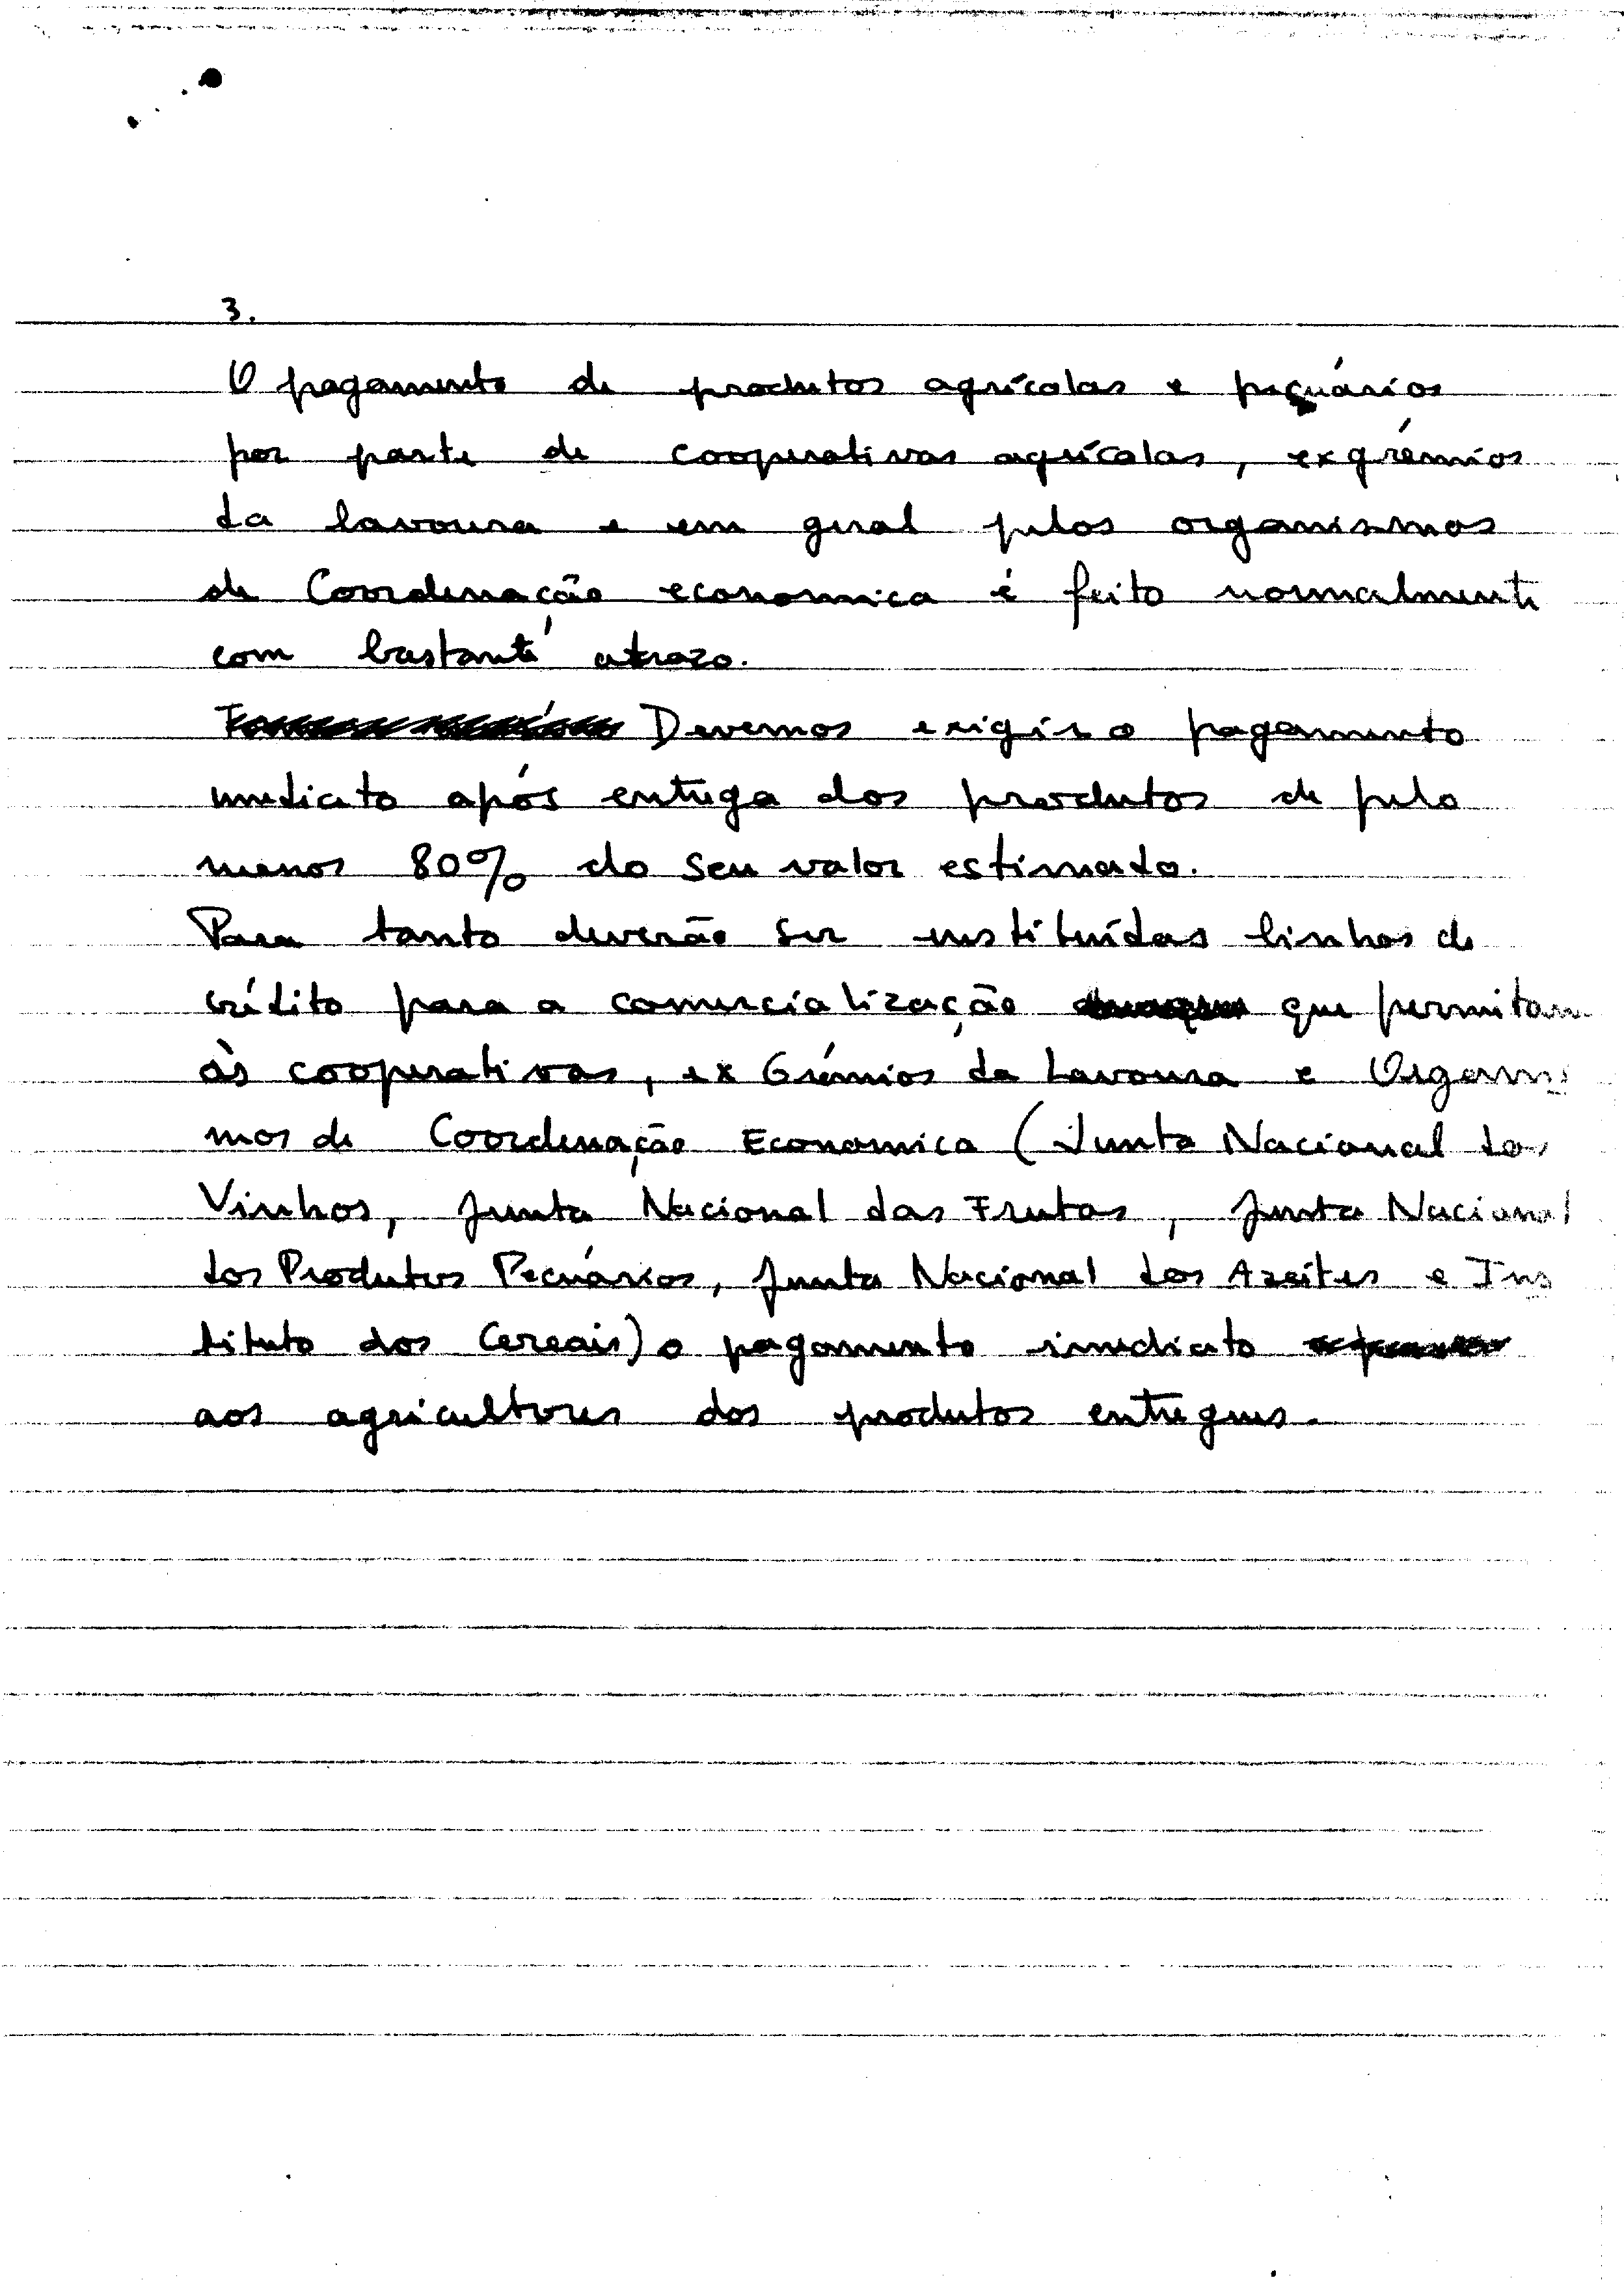 3.
O pagamento de produtos agrícolas e pecuários
por parte de cooperativas agrícolas, ex grémios
da lavoura e em geral pelos organismos
de Coordenação economica é feito normalmente
com bastante atrazo.
Devemos exigir o pagamento
imediato após entrega dos produtos de pelo
menos 80% do seu valor estimado.
Para tanto deverão ser instituídas linhas de
crédito para a comercialização que permitam
às cooperativas, ex Grémios da Lavoura e Organis
mos de Coordenação Economica (Junta Nacional dos
Vinhos, Junta Nacional das Frutas, Junta Nacional
dos Produtos Pecuários, Junta Nacional dos Azeites e Ins
tituto dos Cereais) o pagamento imediato
aos agricultores dos produtos entregues.